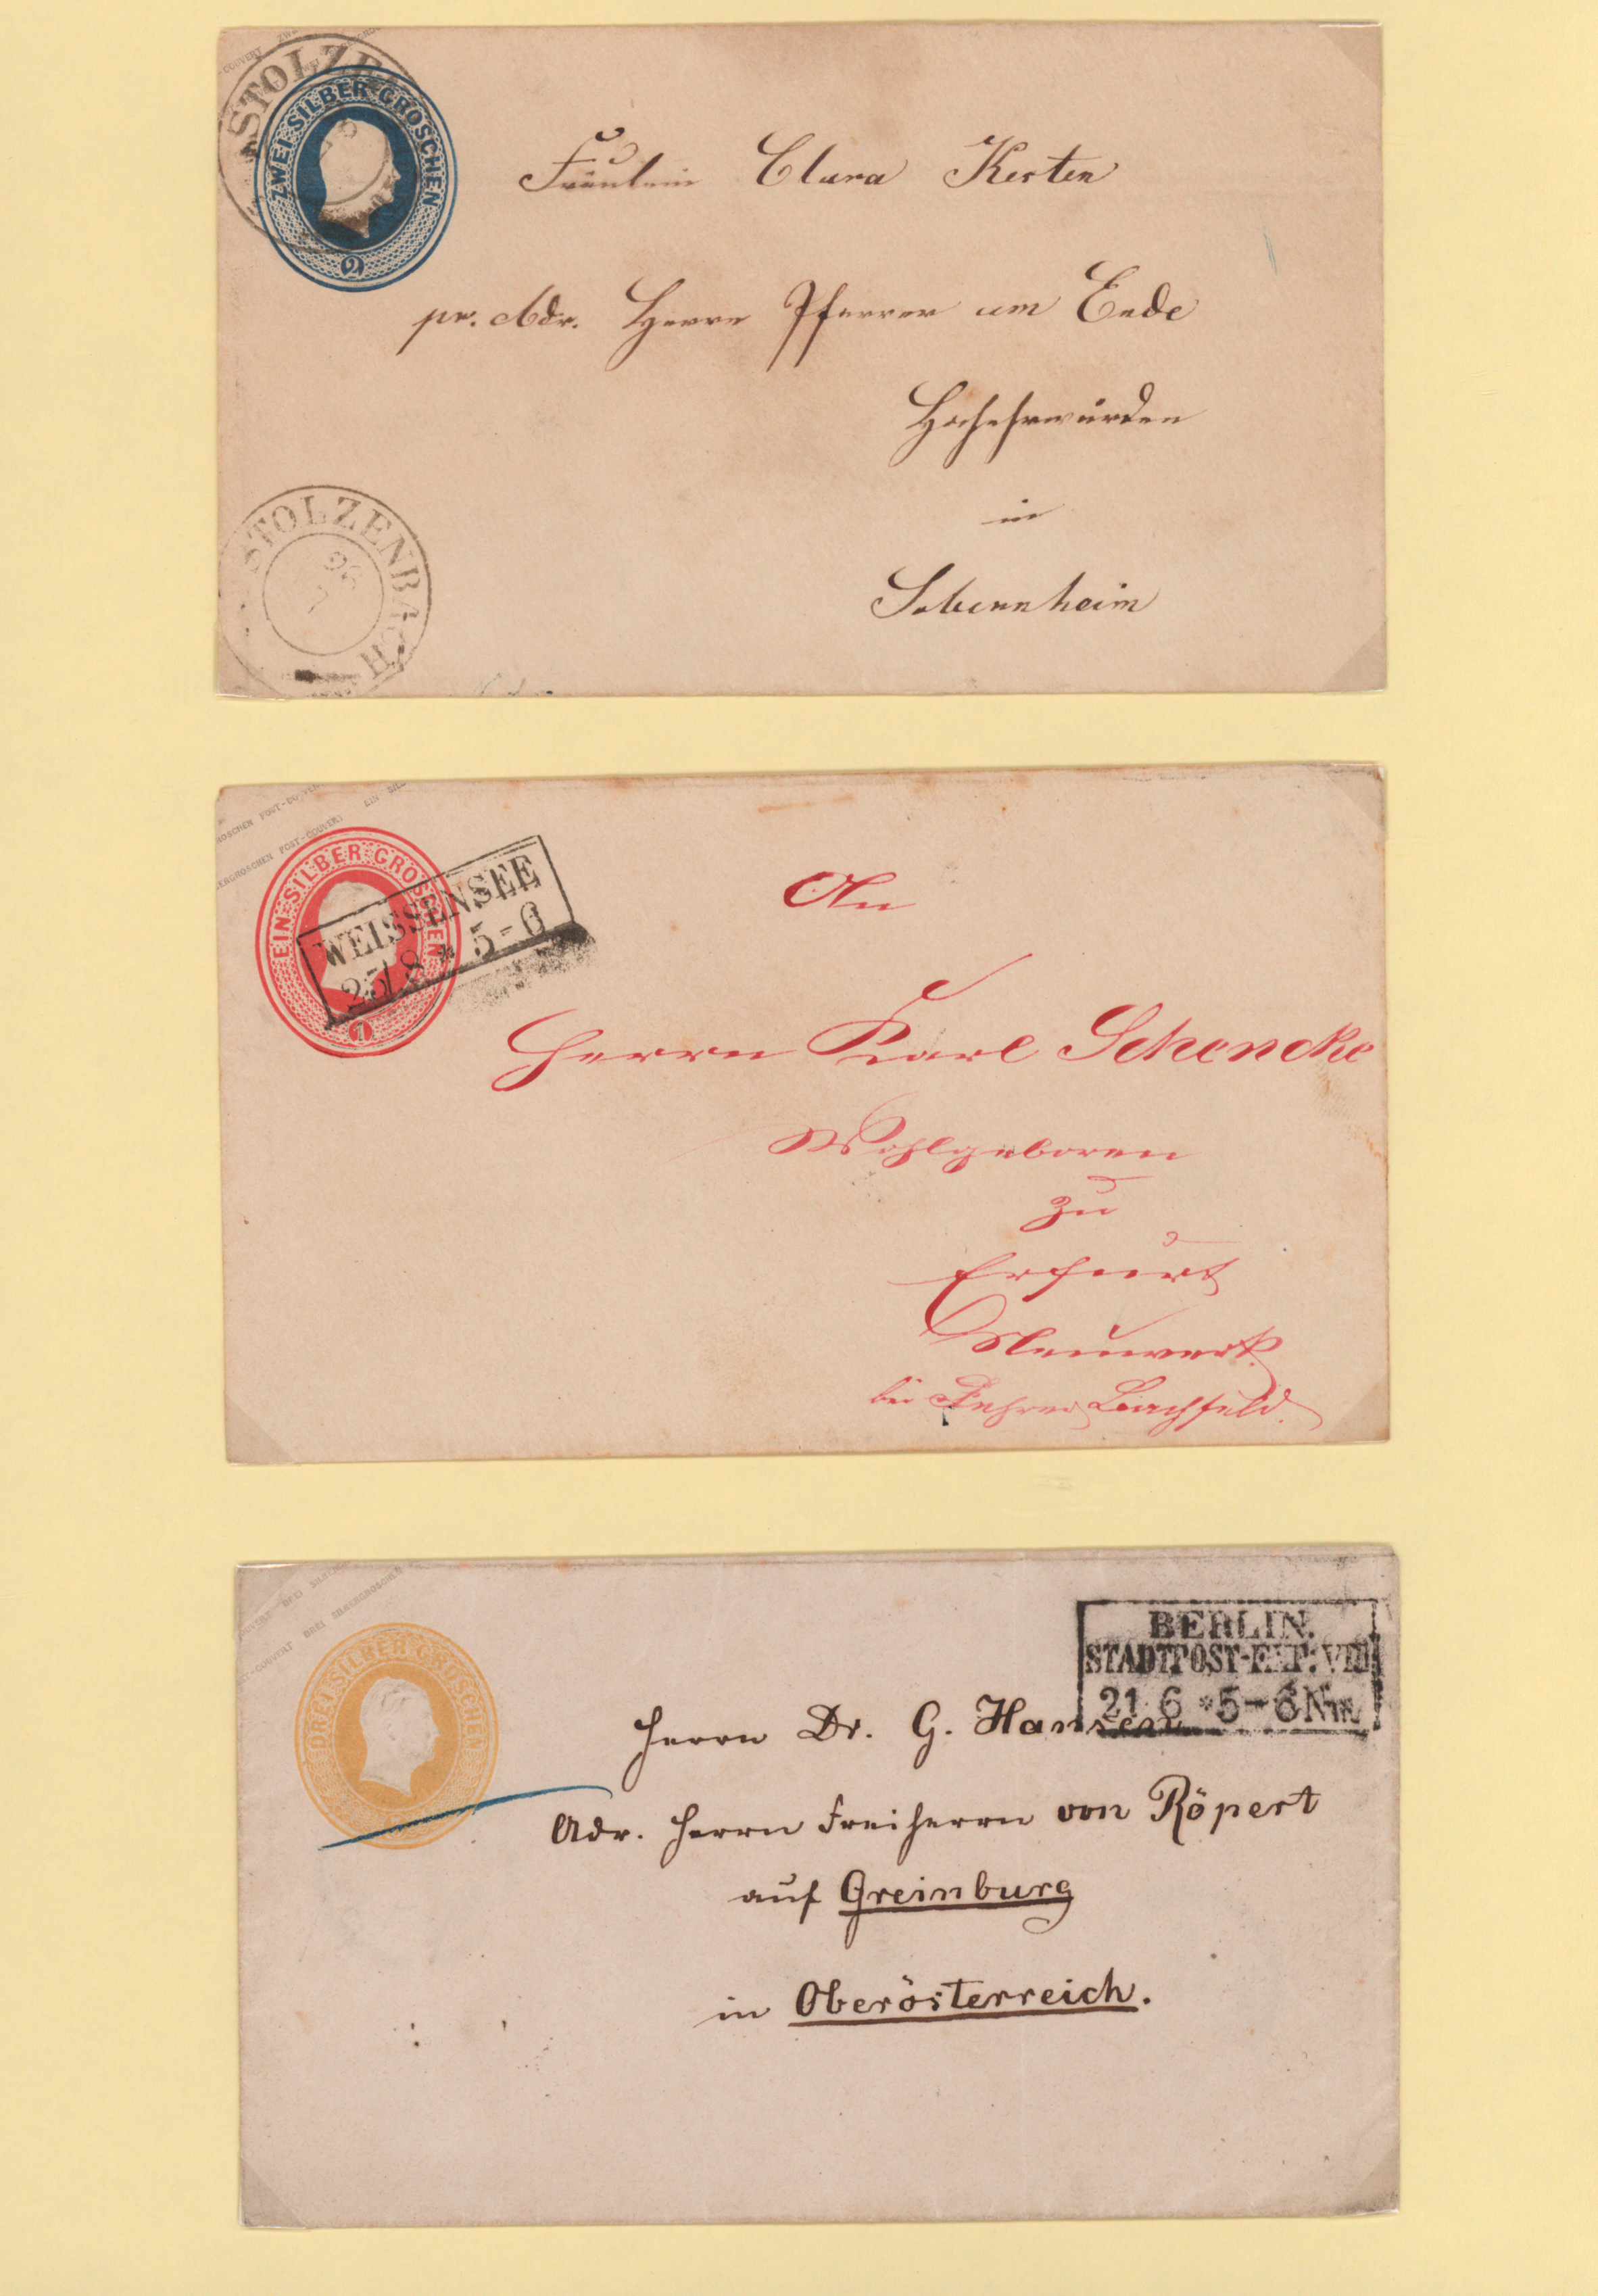 ZWEI SILBER GROSCHEN
2
STOLZENBACH
Fräulein Clara Kersten
pr. Adr. Herrn Pfarrer am Ende
Hochehrwürden
in
STOLZENBACH
26
7
EIN SILBER GROSCHEN
1
WEISSENSEE
25/8 * 5-6
An
Herrn Karl Schencke
Wohlgeboren
zu
Erfurt
Neuwerk
bei
DREI SILBER GROSCHEN
BERLIN.
STADTPOST-EXP: VIII
21 6 *5-6 Nm.
Herrn Dr. G. Hansen
Adr. Herrn Freiherrn von Röpert
auf Greinburg
in Oberösterreich.